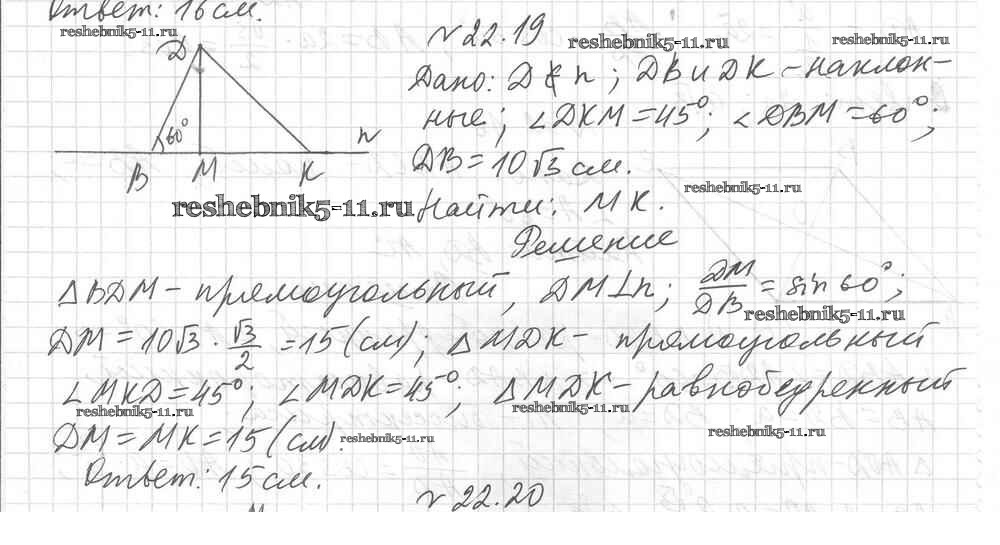 Ответ: 16 см.
reshebnik5-11.ru
№22.19
reshebnik5-11.ru
reshebnik5-11.ru
D
60°
n
B M K
Дано: D ∉ n; DB и DK – наклон-
ные; ∠DKM = 45°; ∠DBM = 60°;
DB = 10√3 см.
reshebnik5-11.ru
reshebnik5-11.ru
Найти: MK.
Решение
△BDM – прямоугольный, DM⊥n; DM/DB = sin 60°;
reshebnik5-11.ru
DM = 10√3 · √3/2 = 15 (см); △MDK – прямоугольный
∠MKD = 45°; ∠MDK = 45°; △MDK – равнобедренный
reshebnik5-11.ru
reshebnik5-11.ru
DM = MK = 15 (см).
reshebnik5-11.ru
reshebnik5-11.ru
Ответ: 15 см.
№22.20